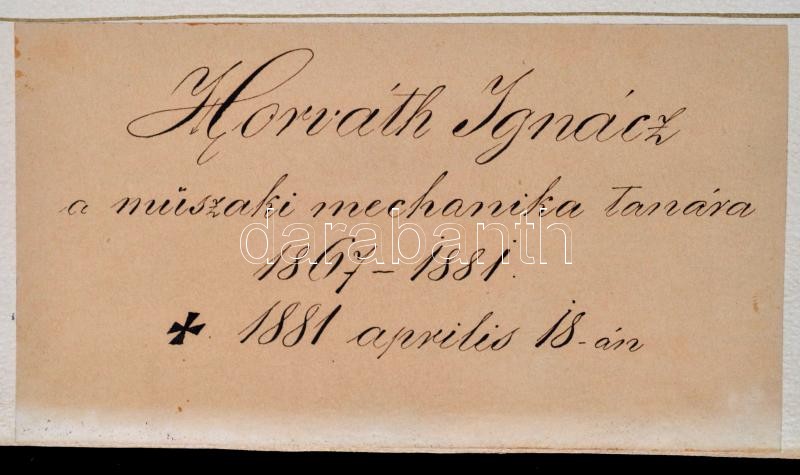 Horváth Ignácz
a müszaki mechanika tanára
darabanth
1867-1881.
✠ 1881 aprilis 18-án